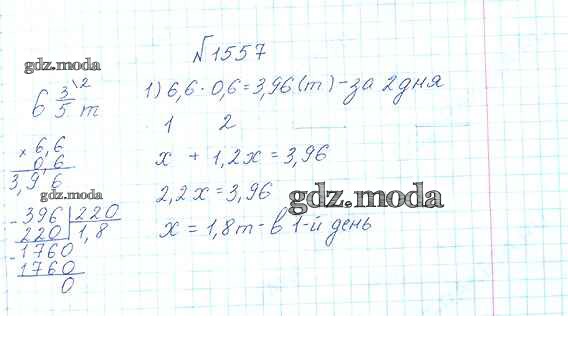 №1557
gdz.moda
6 3/5 т \2
1) 6,6 · 0,6 = 3,96 (т) - за 2 дня
1 2
× 6,6
0,6
3,96
x + 1,2x = 3,96
gdz.moda
2,2x = 3,96
gdz.moda
- 396 | 220
220 | 1,8
x = 1,8т - в 1-й день
- 1760
1760
0